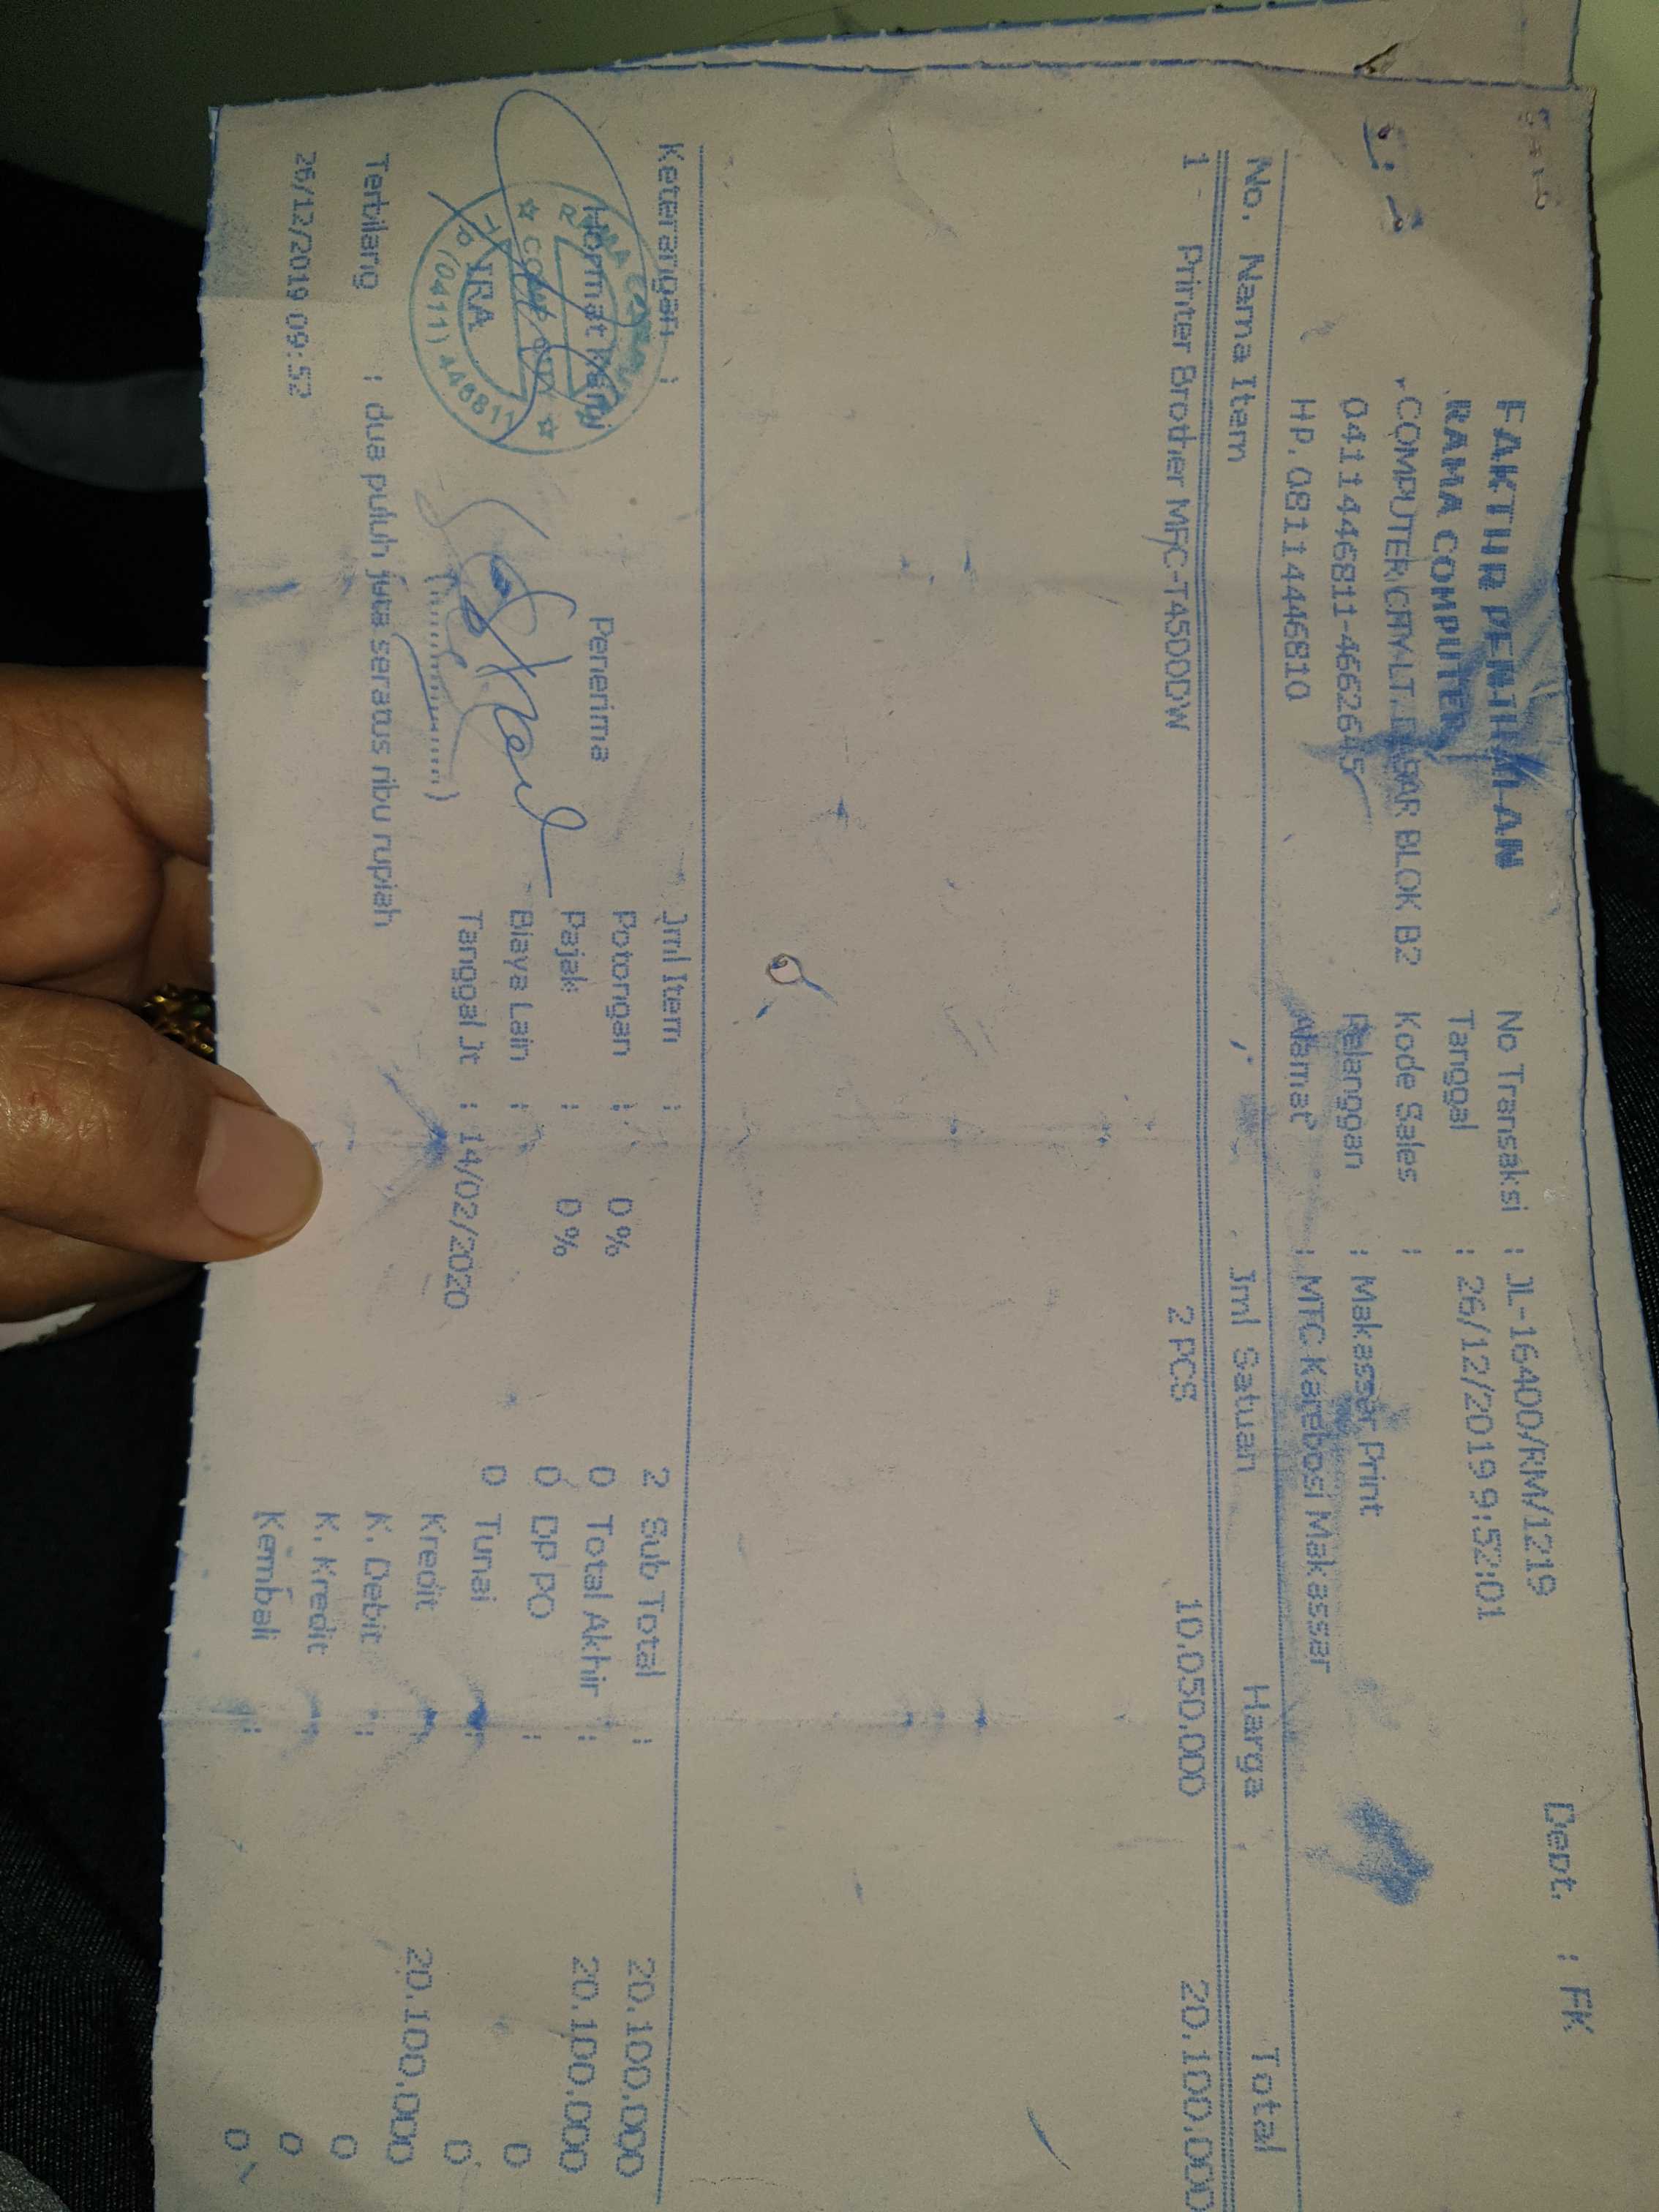 Dept. : FK
FAKTUR PENJUALAN
No Transaksi : JL-16400/RM/1219
RAMA COMPUTER
Tanggal : 26/12/2019 9:52:01
COMPUTER CITY LT. DASAR BLOK B2
Kode Sales :
04114446811-4662645
Pelanggan : Makassar Print
HP. 08114446810
Alamat : MTC Karebosi Makassar
No. Nama Item Jml Satuan Harga Total
1 Printer Brother MFC-T4500DW 2 PCS 10.050.000 20.100.000
Keterangan :
Jml Item : 2 Sub Total : 20.100.000
Hormat Kami
Penerima
Potongan : 0% 0 Total Akhir : 20.100.000
Pajak : 0% 0 DP PO : 0
Biaya Lain : 0 Tunai : 0
Tanggal Jt : 14/02/2020 Kredit : 20.100.000
(................)
K. Debit : 0
K. Kredit : 0
Kembali : 0
Terbilang : dua puluh juta seratus ribu rupiah
26/12/2019 09:52